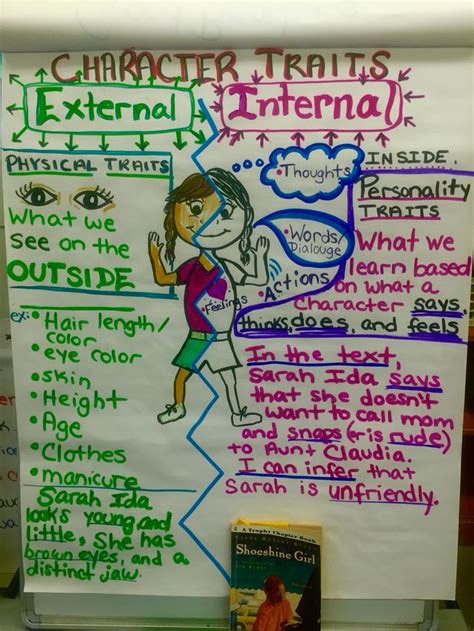 CHARACTER TRAITS
External
Internal
PHYSICAL TRAITS
What we
see on the
OUTSIDE
ex:
• Hair length/
color
• eye color
• skin
• Height
• Age
• Clothes
• manicure
Sarah Ida
looks young and
little, She has
brown eyes, and a
distinct jaw.
• Thoughts
• Words/
Dialouge
• Actions
• Feelings
INSIDE.
Personality
TRAITS
What we
learn based
on what a
character says,
thinks, does, and feels
In the text,
Sarah Ida says
that she doesn't
want to call mom
and snaps (is rude)
to Aunt Claudia.
I can infer that
Sarah is unfriendly.
A Trophy Chapter Book
Shoeshine Girl